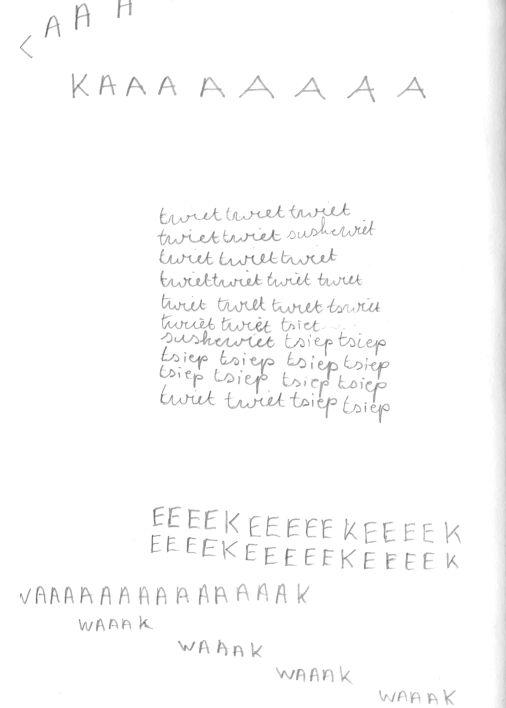 KAAAAAAAA
twiet twiet twiet
twiet twiet suskewiet
twiet twiet twiet
twiet twiet twiet twiet
twiet twiet twiet twiet
twiet twiet tsiet
suskewiet tsiep tsiep
tsiep tsiep tsiep tsiep
tsiep tsiep tsiep tsiep
twiet twiet tsiep tsiep
EEEEKEEEEEKEEEEK
EEEEKEEEEEKEEEEK
VAAAAAAAAAAAAK
WAAAK
WAAAK
WAAAK
WAAAK